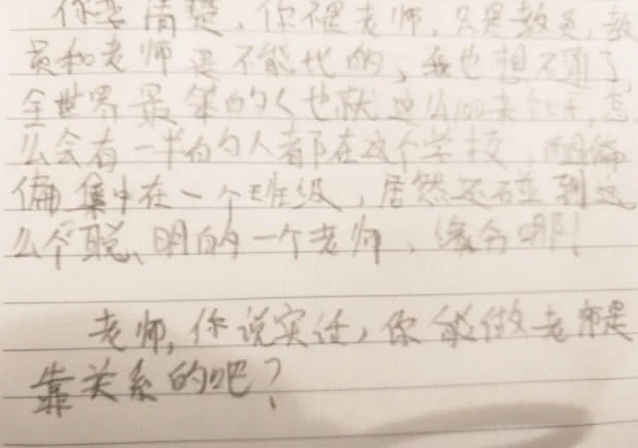 你要清楚，你不是老师，只是教员，教
员和老师是不能比的，我也想不通了，
全世界最笨的人也就这么100来个，怎
么会有一半的人都在这个学校，
偏集中在一个班级，居然还碰到这
么个聪明的一个老师，缘分啊！
老师，你说实话，你能做老师是
靠关系的吧？